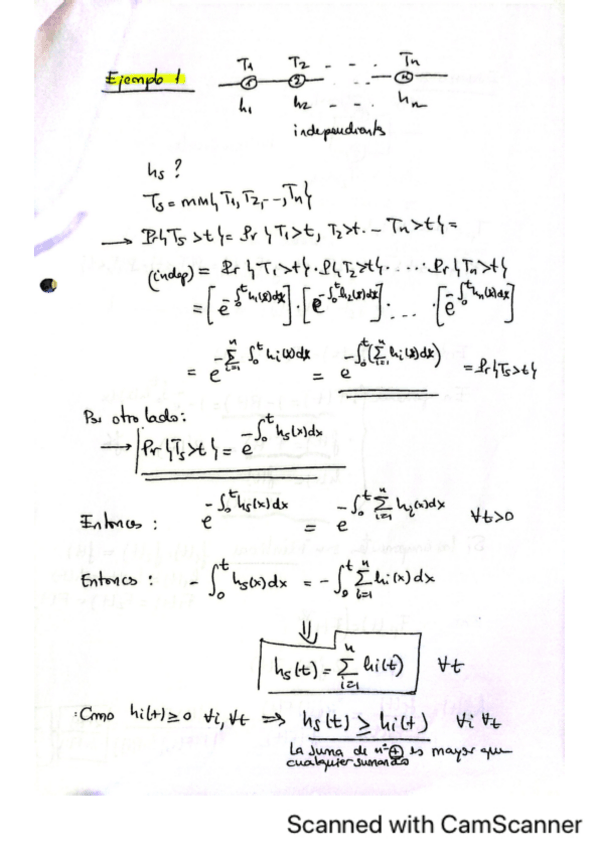 T1 T2 - - - Tn
Ejemplo 1
1 2 n
h1 h2 - - - hn
independientes
hs ?
Ts = min{T1, T2, --, Tn}
→ Pr{Ts > t} = Pr{T1>t, T2>t, -- Tn>t} =
(indep) = Pr{T1>t}·Pr{T2>t}· ... ·Pr{Tn>t}
= [e^{-∫₀ᵗ h1(x)dx}]·[e^{-∫₀ᵗ h2(x)dx}]· ... ·[e^{-∫₀ᵗ hn(x)dx}]
= e^{-Σ_{i=1}^n ∫₀ᵗ hi(x)dx} = e^{-∫₀ᵗ (Σ_{i=1}^n hi(x)dx)} = Pr{Ts>t}
Por otro lado:
→ Pr{Ts>t} = e^{-∫₀ᵗ hs(x)dx}
Entonces : e^{-∫₀ᵗ hs(x)dx} = e^{-∫₀ᵗ Σ_{i=1}^n hi(x)dx} ∀t>0
Entonces : -∫₀ᵗ hs(x)dx = -∫₀ᵗ Σ_{i=1}^n hi(x)dx
⇓
hs(t) = Σ_{i=1}^n hi(t) ∀t
· Como hi(t) ≥ 0 ∀i, ∀t ⇒ hs(t) ≥ hi(t) ∀i ∀t
La suma de nº ⊕ es mayor que
cualquier sumando
Scanned with CamScanner